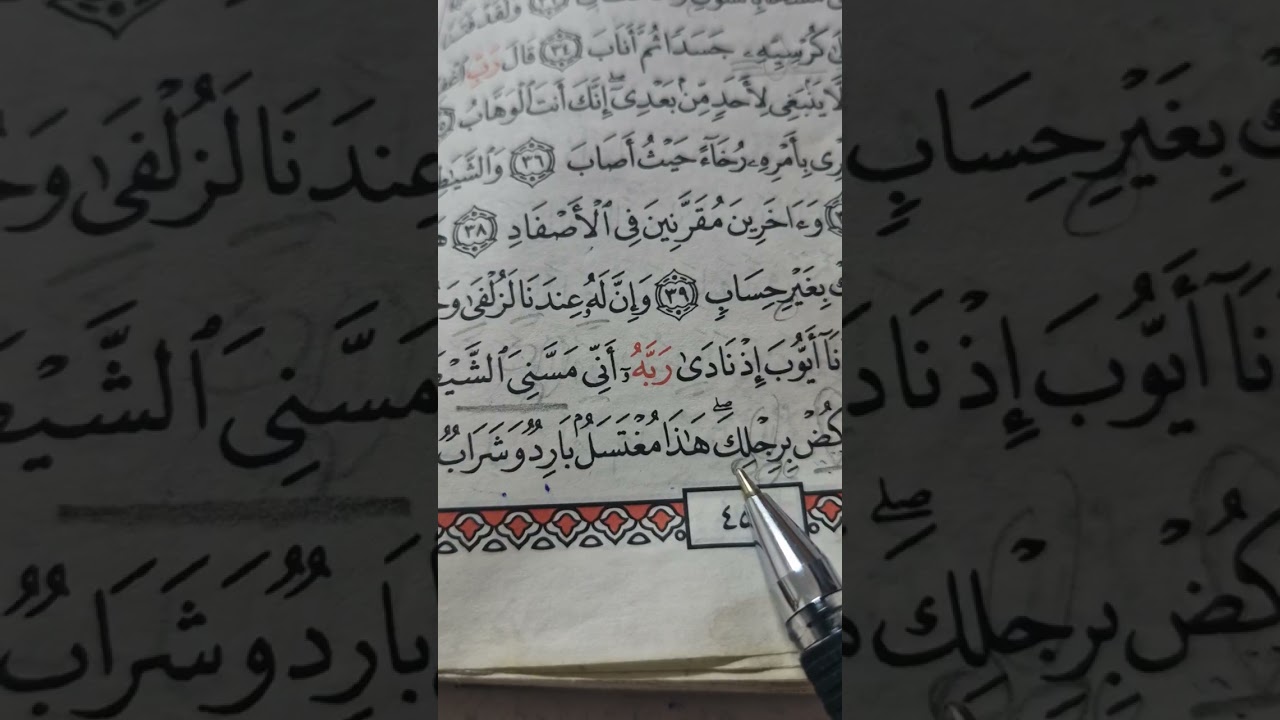 كُرْسِيِّهِۦ جَسَدًا ثُمَّ أَنَابَ ٣٤ قَالَ رَبِّ
لَّا يَنۢبَغِى لِأَحَدٍ مِّنۢ بَعْدِىٓ ۖ إِنَّكَ أَنتَ ٱلْوَهَّابُ
بِأَمْرِهِۦ رُخَآءً حَيْثُ أَصَابَ ٣٦
وَءَاخَرِينَ مُقَرَّنِينَ فِى ٱلْأَصْفَادِ ٣٨
بِغَيْرِ حِسَابٍ ٣٩ وَإِنَّ لَهُۥ عِندَنَا لَزُلْفَىٰ
أَيُّوبَ إِذْ نَادَىٰ رَبَّهُۥٓ أَنِّى مَسَّنِىَ
بِرِجْلِكَ ۖ هَـٰذَا مُغْتَسَلٌۢ بَارِدٌ وَشَرَابٌ